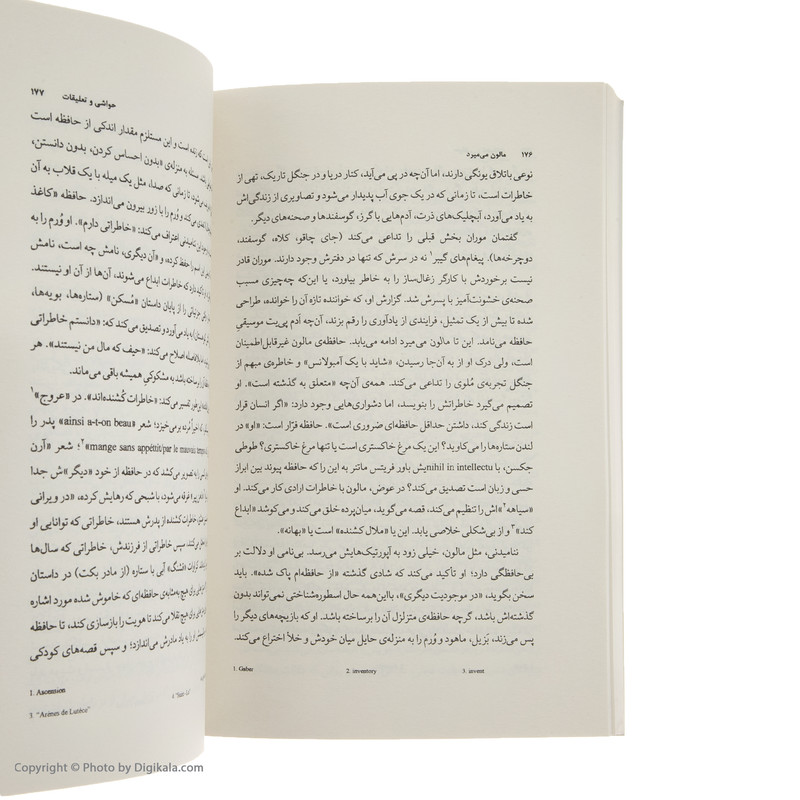 ۱۷۶ مالون می‌میرد
نوعی باتلاق یونگی دارند، اما آن‌چه در پی می‌آید، کنار دریا و در جنگل تاریک، تهی از
خاطرات است، تا زمانی که در یک جوی آب پدیدار می‌شود و تصاویری از زندگی‌اش
به یاد می‌آورد، آبچلیک‌های ذرت، آدم‌هایی با گرز، گوسفندها و صحنه‌های دیگر.
گفتمان موران بخش قبلی را تداعی می‌کند (جای چاقو، کلاه، گوسفند،
دوچرخه‌ها). پیغام‌های گیبر۱ نه در سرش که تنها در دفترش وجود دارند. موران قادر
نیست برخوردش با کارگر زغال‌ساز را به خاطر بیاورد، یا این‌که چه‌چیزی مسبب
صحنه‌ی خشونت‌آمیز با پسرش شد. گزارش او، که خواننده تازه آن را خوانده، طراحی
شده تا بیش از یک تمثیل، فرایندی از یادآوری را رقم بزند، آن‌چه آدم پی‌یت موسیقیِ
حافظه می‌نامد. این تا مالون می‌میرد ادامه می‌یابد. حافظه‌ی مالون غیرقابل‌اطمینان
است، ولی درک او از به آن‌جا رسیدن، «شاید با یک آمبولانس» و خاطره‌ی مبهم از
جنگل تجربه‌ی مُلوی را تداعی می‌کند. همه‌ی آن‌چه «متعلق به گذشته است». او
تصمیم می‌گیرد خاطراتش را بنویسد، اما دشواری‌هایی وجود دارد: «اگر انسان قرار
است زندگی کند، داشتن حداقل حافظه‌ای ضروری است». حافظه فرّار است: «او» در
لندن ستاره‌ها را می‌کاوید؟ این یک مرغ خاکستری است یا تنها مرغ خاکستری؟ طوطی
جکسن، با nihil in intellectuیش باور فریتس ماتنر به این را که حافظه پیوند بین ابراز
حسی و زبان است تصدیق می‌کند؟ در عوض، مالون با خاطرات ارادی کار می‌کند. او
«سیاهه۲»اش را تنظیم می‌کند، قصه می‌گوید، میان‌پرده خلق می‌کند و می‌کوشد «ابداع
کند»۳ و از بی‌شکلی خلاصی یابد. این یا «ملال کشنده» است یا «بهانه».
ننامیدنی، مثل مالون، خیلی زود به آپورتیک‌هایش می‌رسد. بی‌نامی او دلالت بر
بی‌حافظگی دارد؛ او تأکید می‌کند که شادی گذشته «از حافظه‌ام پاک شده». باید
سخن بگوید، «در موجودیت دیگری»، بااین‌همه حال اسطوره‌شناختی نمی‌تواند بدون
گذشته‌اش باشد، گرچه حافظه‌ی متزلزل آن را برساخته باشد. او که بازیچه‌های دیگر را
پس می‌زند، بَزیل، ماهود و وُرم را به منزله‌ی حایل میان خودش و خلأ اختراع می‌کند.
1. Geber 2. inventory 3. invent
حواشی و تعلیقات ۱۷۷
که زنده است و این مستلزم مقدار اندکی از حافظه است
مسئله به منزله‌ی «بدون احساس کردن، بدون دانستن،
تا زمانی که صدا، مثل یک میله با یک قلاب به آن
می‌کند و وُرم را با زور بیرون می‌اندازد. حافظه «کاغذ
این ناامیدی اعتراف می‌کند: «خاطراتی دارم». او وُرم را به
را حفظ کرده، و «آن دیگری، نامش چه است، نامش
دارد که خاطرات ابداع می‌شوند، آن‌ها از آن او نیستند.
را از پایان داستان «مُسکن» (ستاره‌ها، بویه‌ها،
به یاد می‌آورد و تصدیق می‌کند که: «دانستم خاطراتی
بلافاصله اصلاح می‌کند: «حیف که مال من نیستند». هر
برساخته باشد به مشکوکیِ همیشه باقی می‌ماند.
تفسیر می‌کند: «خاطرات کُشنده‌اند». در «عروج»۱
مُرده برمی‌خیزد؛ شعر «ainsi a-t-on beau» پدر را
«mange sans appétit/par le mauvais temps»؛ شعر «آرن
را به تصویر می‌کشد که در حافظه از خود «دیگر»ش جدا
می‌شود، با شبحی که رهایش کرده، «در ویرانی
خاطرات کشنده از پدرش هستند، خاطراتی که توانایی او
می‌کنند. سپس خاطراتی از فرزندش، خاطراتی که سال‌ها
«فشنگ» آبی با ستاره (از مادر بکت) در داستان
برای هیچ به‌مثابه‌ی حافظه‌ای که خاموش شده مورد اشاره
برای هیچ تقلا می‌کند تا هویت را بازسازی کند، تا حافظه
او را به یاد مادرش می‌اندازد؛ و سپس قصه‌های کودکی
1. Ascension
3. "Arènes de Lutèce"
Copyright © Photo by Digikala.com